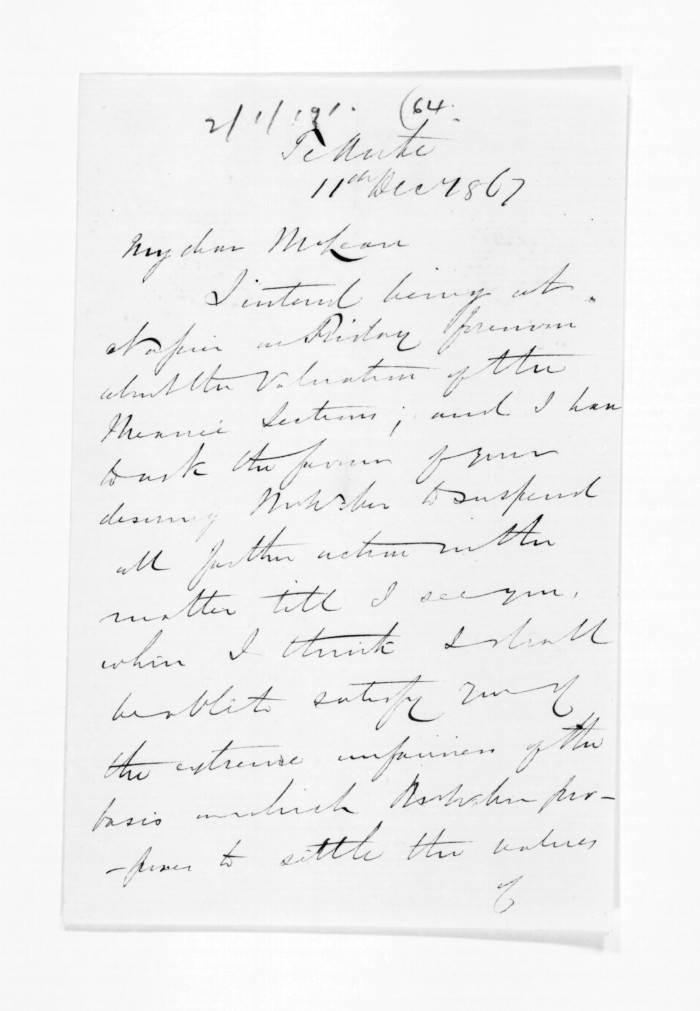 2/1/191. (64.
Te Aute
11th Decr 1867
My dear McLean
I intend being at
Napier on Friday forenoon
about the valuation of the
Meanee Sections; and I have
to ask the favour of your
desiring to suspend
all further action in the
matter till I see you,
when I think I shall
be able to satisfy you of
the extreme unfairness of the
basis on which pro-
-poses to settle the values
of